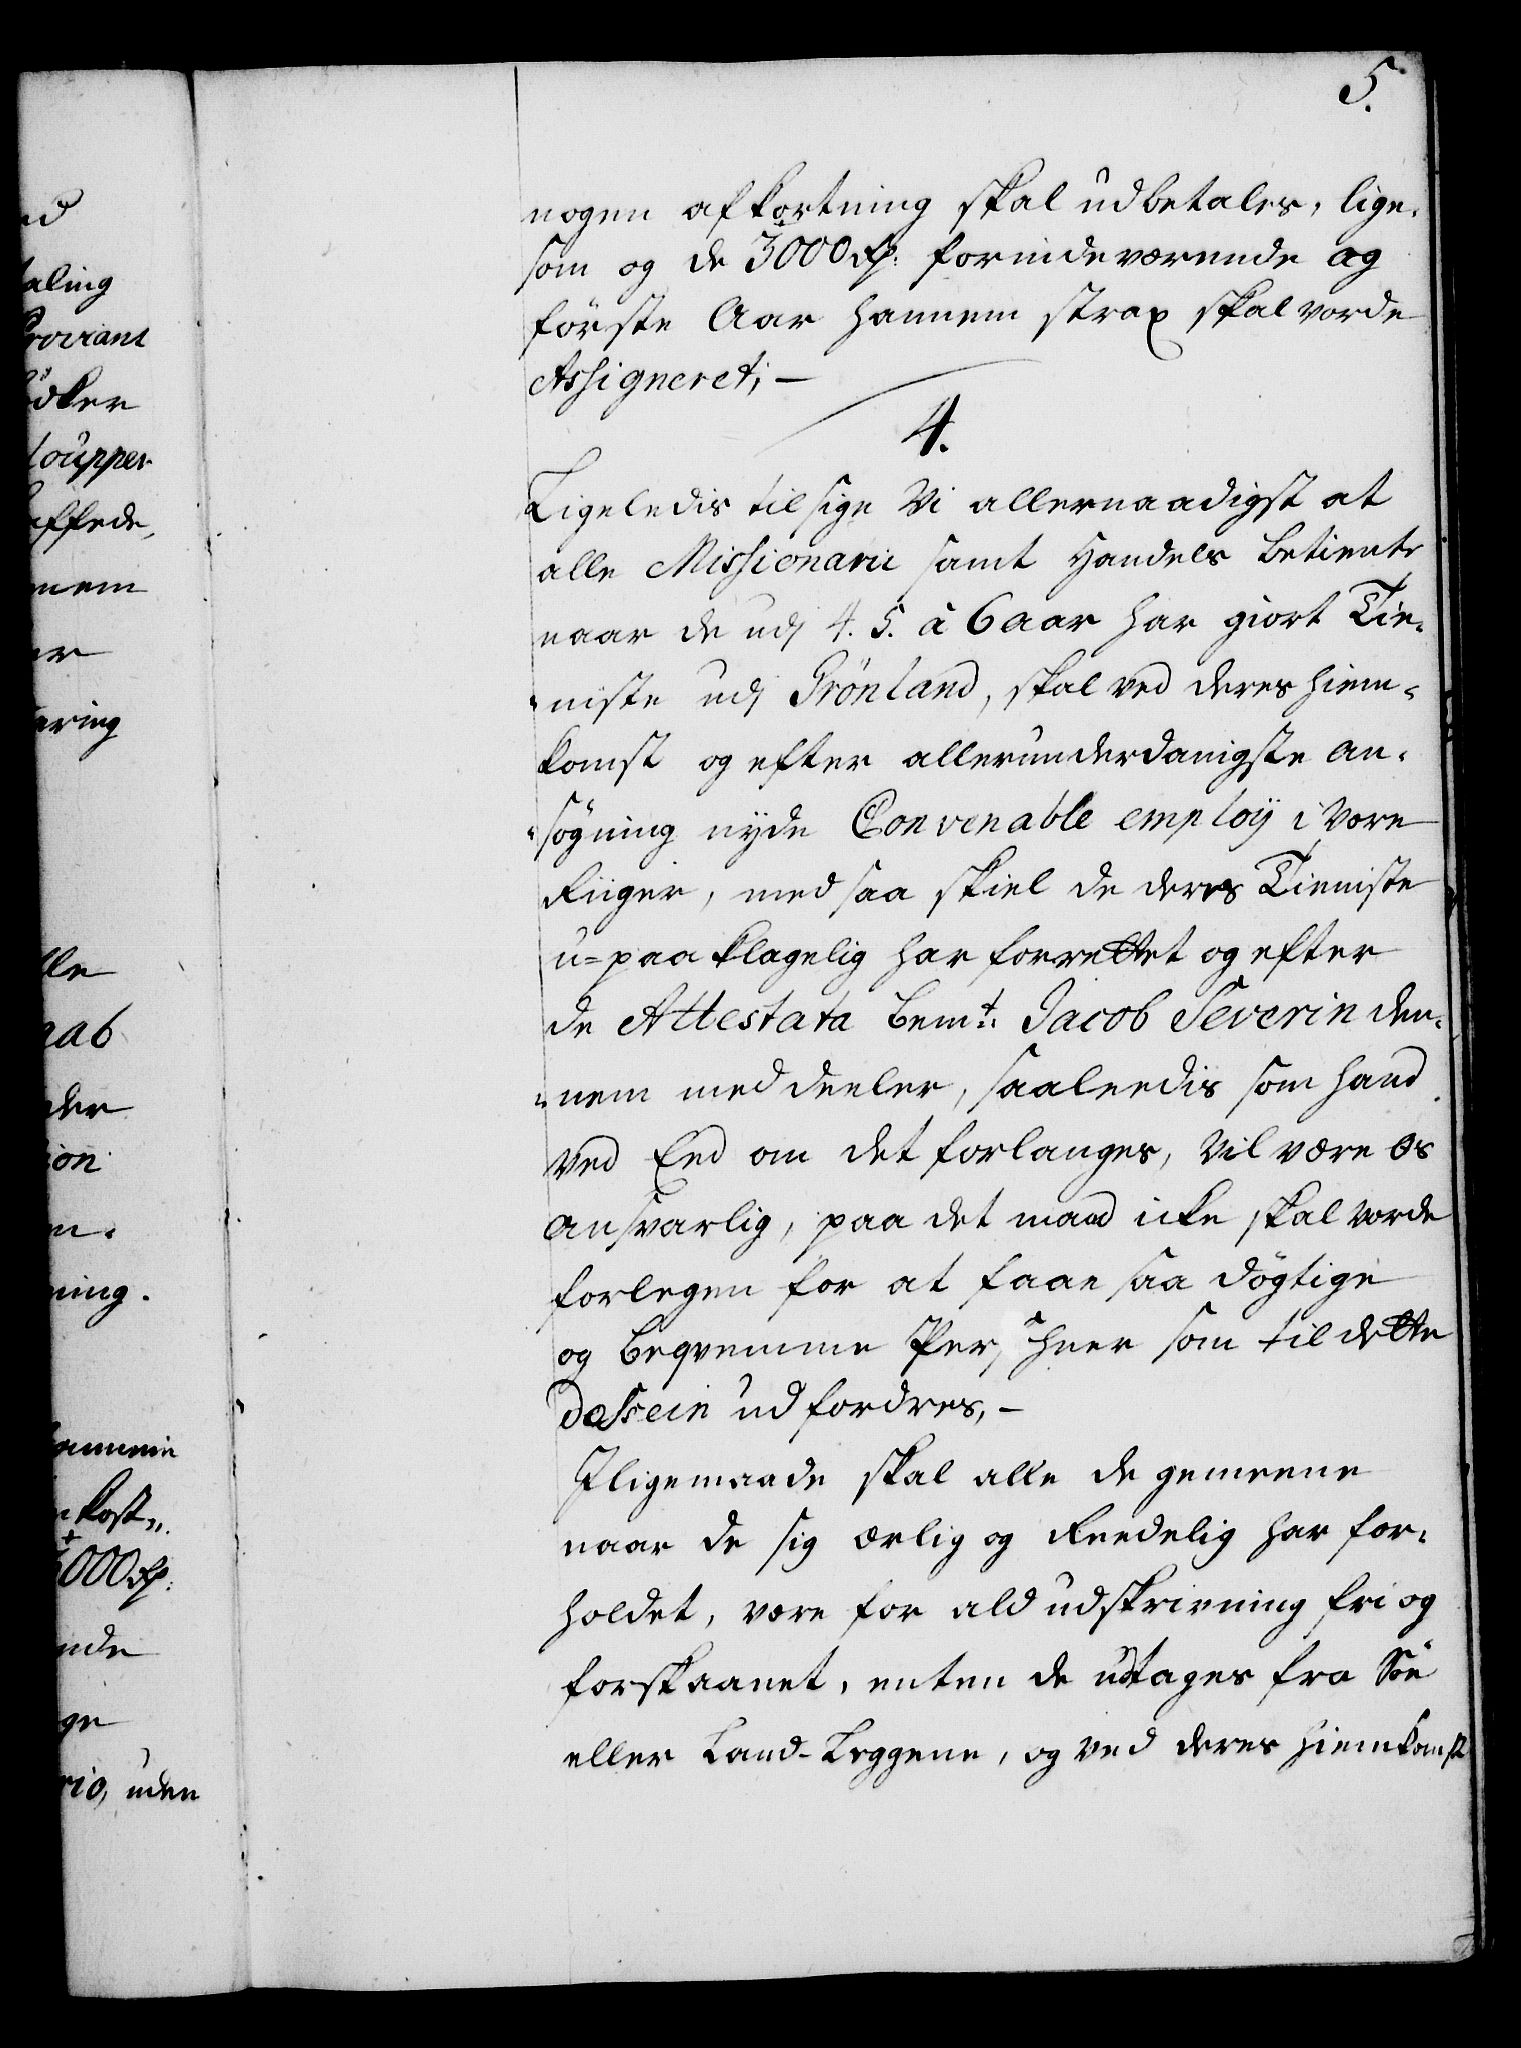 5.
nogen afkortning skal udbetales, lige-
som og de 3000 Rd: forindeværende og
förste Aar hannem strax skal vorde
Assigneret; —
4.
Ligeledis tilsige Vi allernaadigst at
alle Missionarii samt Handels Betiente
naar de udj 4. 5. à 6 aar har giort Tie-
niste udj Grönland, skal ved deres hiem-
komst og efter allerunderdanigste an-
søgning nyde Convenable employ i Vore
Riiger, med saa skiel de deres Tieniste
u=paaklagelig har forrettet og efter
de Attestata bemt: Jacob Severin den-
nem meddeeler, saaleedis som hand
ved Eed om det forlanges, vil være os
ansvarlig, paa det mand icke skal vorde
forlegen for at faae saa dögtige
og beqvemme Per, som til dette
dessein udfordres, —
Jligemaade skal alle de gemeene
naar de sig ærlig og Reedelig har for-
holdet, være for ald udskrivning fri og
forskaanet, enten de udtages fra Söe
eller Land-Leggene, og ved deres hiemkomst
aling
Proviant
ödker
loupper
affede,
nem
er
ering
lle
aab
der
ion
ning.
kost„
000 Rd:
nde
ge
rio, uden